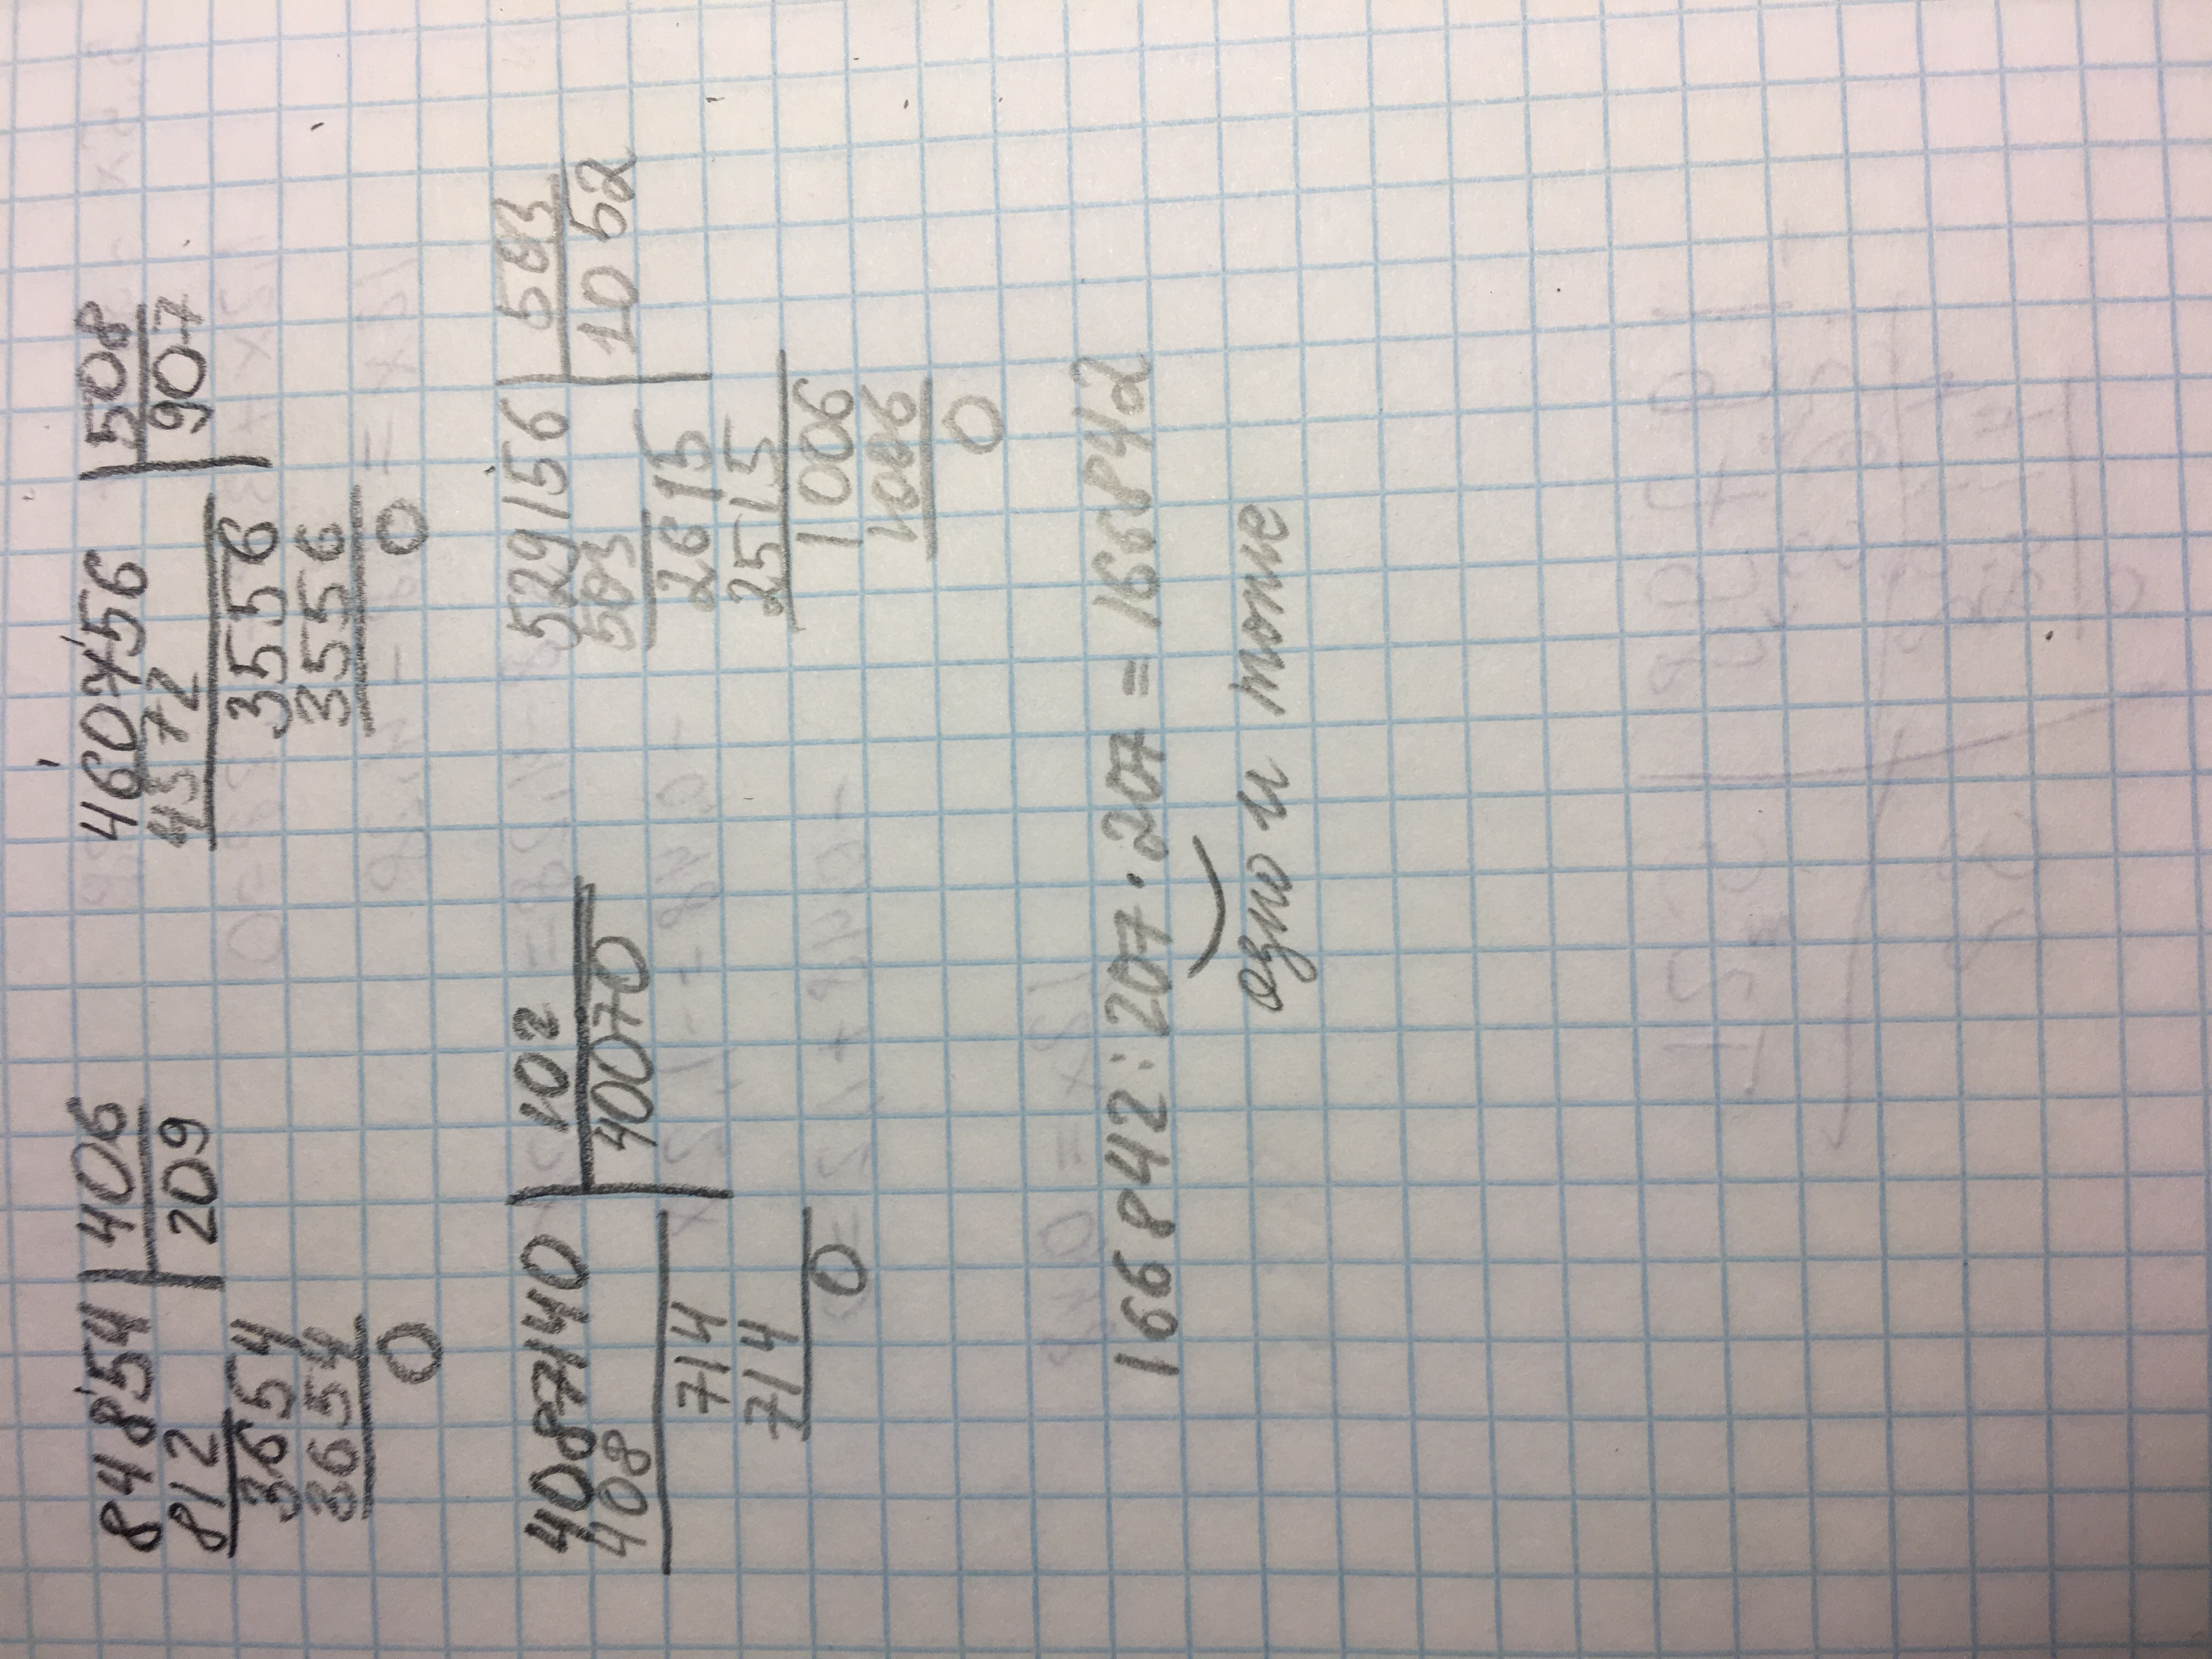 84854 | 406
812 | 209
3654
3654
0
460756 | 508
4572 | 907
3556
3556
0
4087140 | 102
408 | 40070
714
714
0
529156 | 503
503 | 1052
2615
2515
1006
1006
0
166842 : 207 · 207 = 166842
одно и тоже